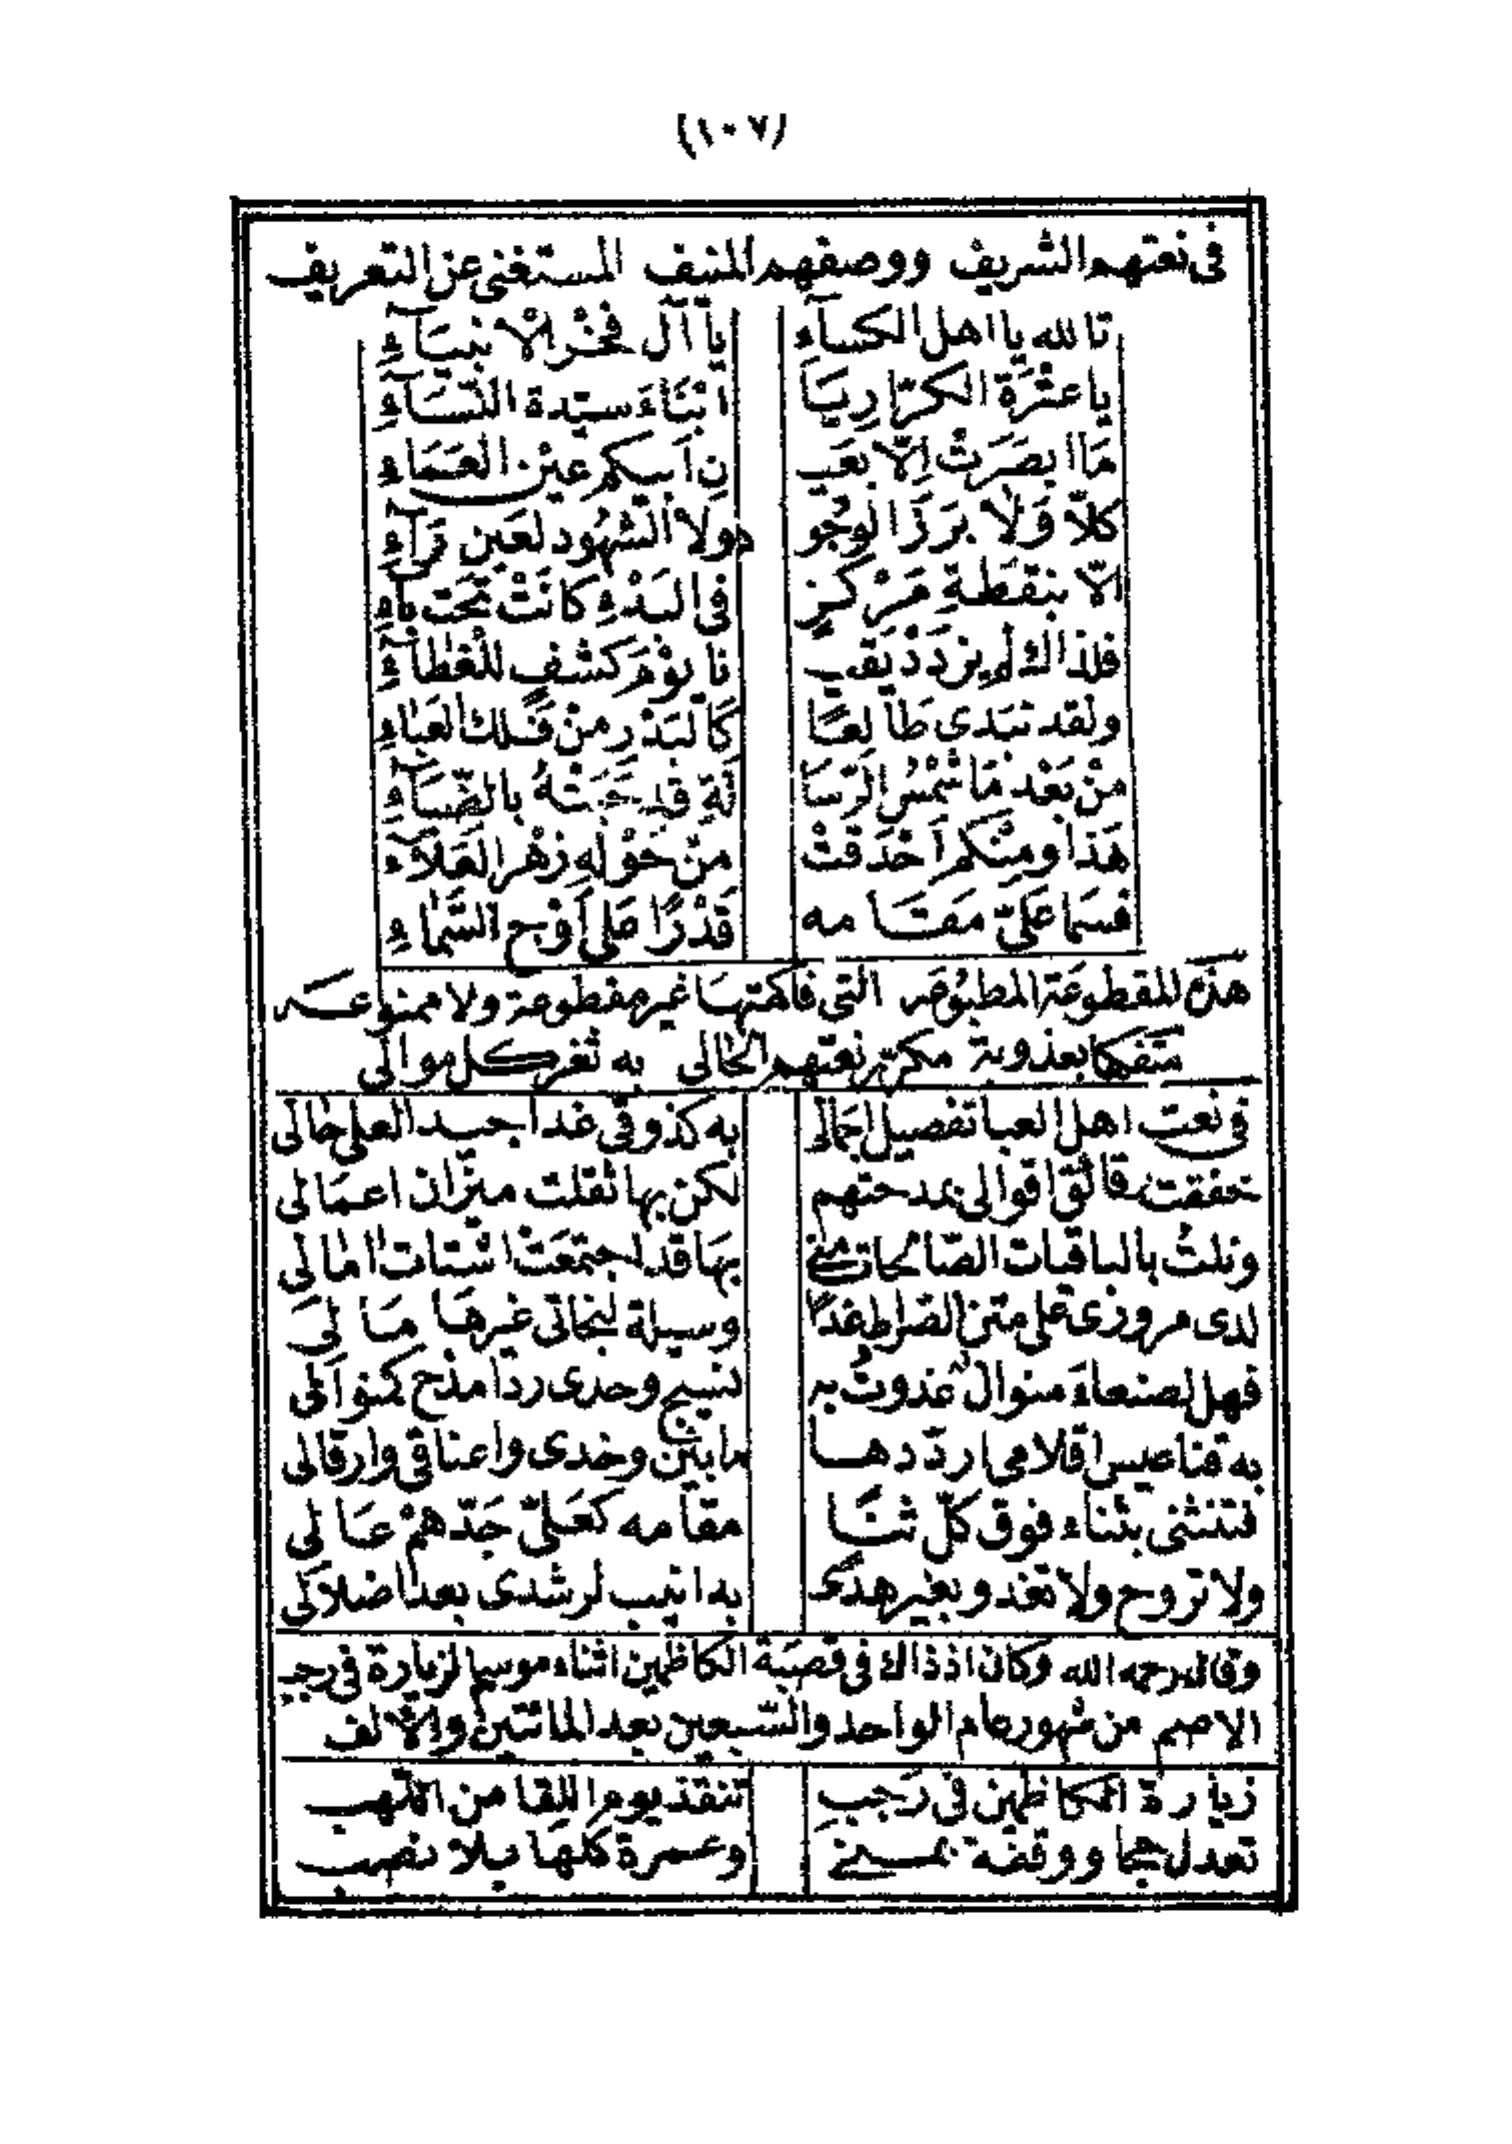 (١٠٧)
في نعتهم الشريف ووصفهم المنيف المستغني عن التعريف
تالله يا اهل الكسآءِ يا آل فخْر الانبيآءِ
يا عتْرَة الكرّار يَا ابْنَاءَ سيّدة النّسَآءِ
مَا ابصَرَتْ الّا بعَي نِ اَبيكم عيْن العَمَاءِ
كلّا وَلَا بَرَزَ الوُجُو د ولا الشّهُود لعَين رَآءِ
الّا بنقطةِ مَرْكزٍ في البَدْءِ كانَتْ تحَت بآءِ
فلذاك لم يزدَدْ يَقي نا يوْمَ كشفٍ للغطآءِ
ولقد تبَدى طَالعًا كَالبَدْرِ منْ فَلك العَباءِ
منْ بَعْد مَا شمْسُ الرّسَا لَةِ قد حَبَتْهُ بالضّيَآءِ
هَذا ومِنْكم اَحْدَقتْ منْ حَوْلهِ زهْر العَلآء
فسَما عَليّ مَقَامه قَدْرًا عَلى اَوْج السّمَاءِ
هذه المقطوعَة المطبُوعَه التي فاكهتهَا غير مقطوعة ولا ممنوعه
متفكها بعذوبة مكرّر نعتهم الحالى به ثغر كل موالى
في نعت اهل العبا تفصيل اجمالى به كذوقي غدا جيد العلى حالى
خففت قالَقَ اقوالى بمدحتهم لكن بها ثقلت ميزان اعمَالى
ونلتُ بالباقيات الصّالحات منىً بهَا قد اجتمعَتْ اشتَات امالى
لدى مرورى على متن الصّراط غدًا وسيلة لنجاتى غيرهَا مَا لى
فهل لصنعاءَ منوال غذوتُ به نسيج وحدى ردا مدْح كمنوالى
به قناعيس اقلامى ارددها ما بين وخدى واعناقي وارقالى
فتنثنى بثناء فوق كلّ ثنَا مقامه كعَليّ جَدّهمْ عَالى
ولا تروح ولا تغدو بغير هدى به انيب لرشدى بعد اضلالى
وقال رحمه الله وكان اذ ذاك في قصبَة الكاظمين اثناء موسم الزيارة في رجب
الاصم من شهور عام الواحد والسّبعين بعد المائتين والالف
زيارة الكاظمين في رَجب تنقذ يوم اللقا من اللّهب
تعدل حجا ووقفة بمنى وعمرة كلها بلا نصب